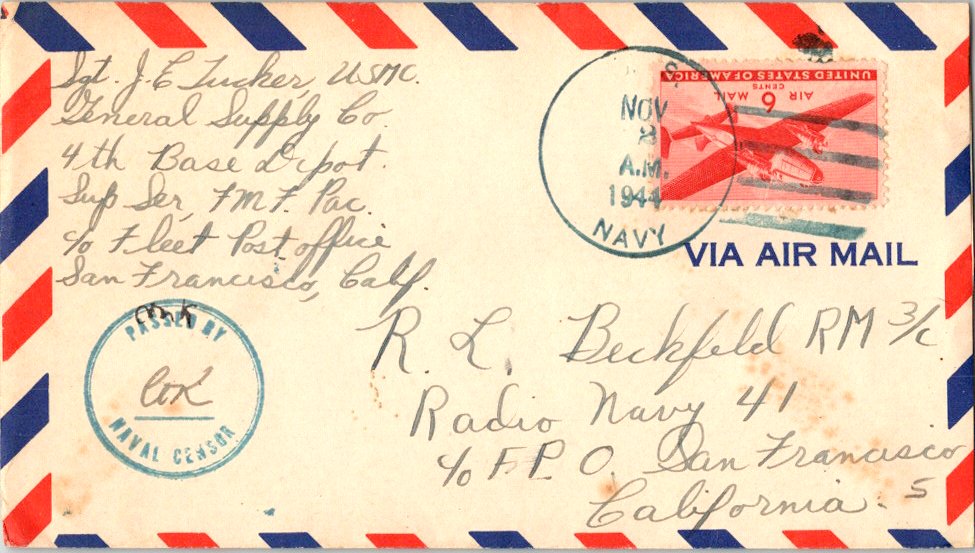 Sgt. J. E. Tucker, USMC.
General Supply Co.
4th Base Depot.
Sup Ser, F.M.F. Pac.
c/o Fleet Post office
San Francisco, Calif.
NOV
8
A.M.
1944
NAVY
UNITED STATES OF AMERICA
6 CENTS
AIR MAIL
VIA AIR MAIL
PASSED BY
NAVAL CENSOR
R. L. Beckfeld RM 3/c
Radio Navy 41
c/o F.P.O. San Francisco
California. 5